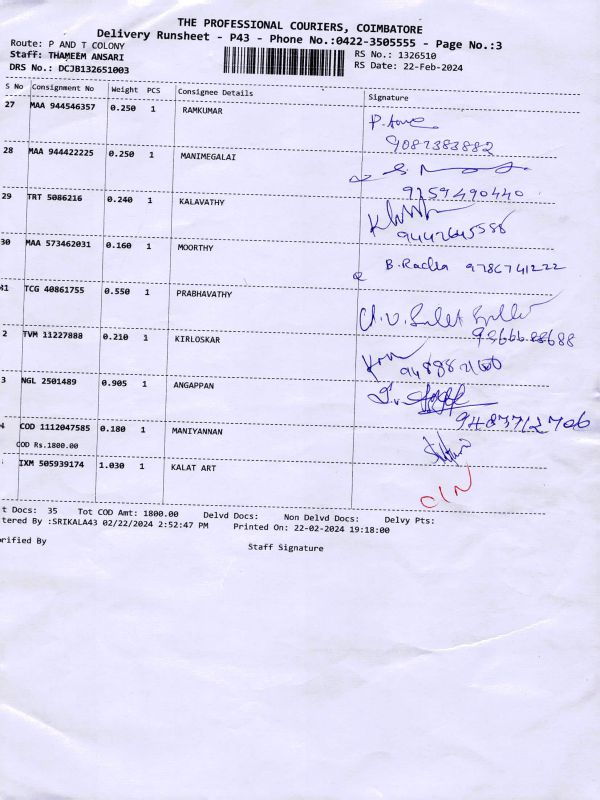 THE PROFESSIONAL COURIERS, COIMBATORE
Delivery Runsheet - P43 - Phone No.:0422-3505555 - Page No.:3
Route: P AND T COLONY
RS No.: 1326510
Staff: THAMEEM ANSARI
RS Date: 22-Feb-2024
DRS No.: DCJB132651003
S No Consignment No Weight PCS Consignee Details Signature
27 MAA 944546357 0.250 1 RAMKUMAR
9087383882
28 MAA 944422225 0.250 1 MANIMEGALAI
9159490440
29 TRT 5086216 0.240 1 KALAVATHY
9442645586
30 MAA 573462031 0.160 1 MOORTHY
B. Radha 9786741222
31 TCG 40861755 0.550 1 PRABHAVATHY
2 TVM 11227888 0.210 1 KIRLOSKAR
3 NGL 2501489 0.905 1 ANGAPPAN
9487712706
4 COD 1112047585 0.180 1 MANIYANNAN
COD Rs.1800.00
IXM 505939174 1.030 1 KALAT ART
CIN
t Docs: 35 Tot COD Amt: 1800.00 Delvd Docs: Non Delvd Docs: Delvy Pts:
tered By :SRIKALA43 02/22/2024 2:52:47 PM Printed On: 22-02-2024 19:18:00
rified By
Staff Signature